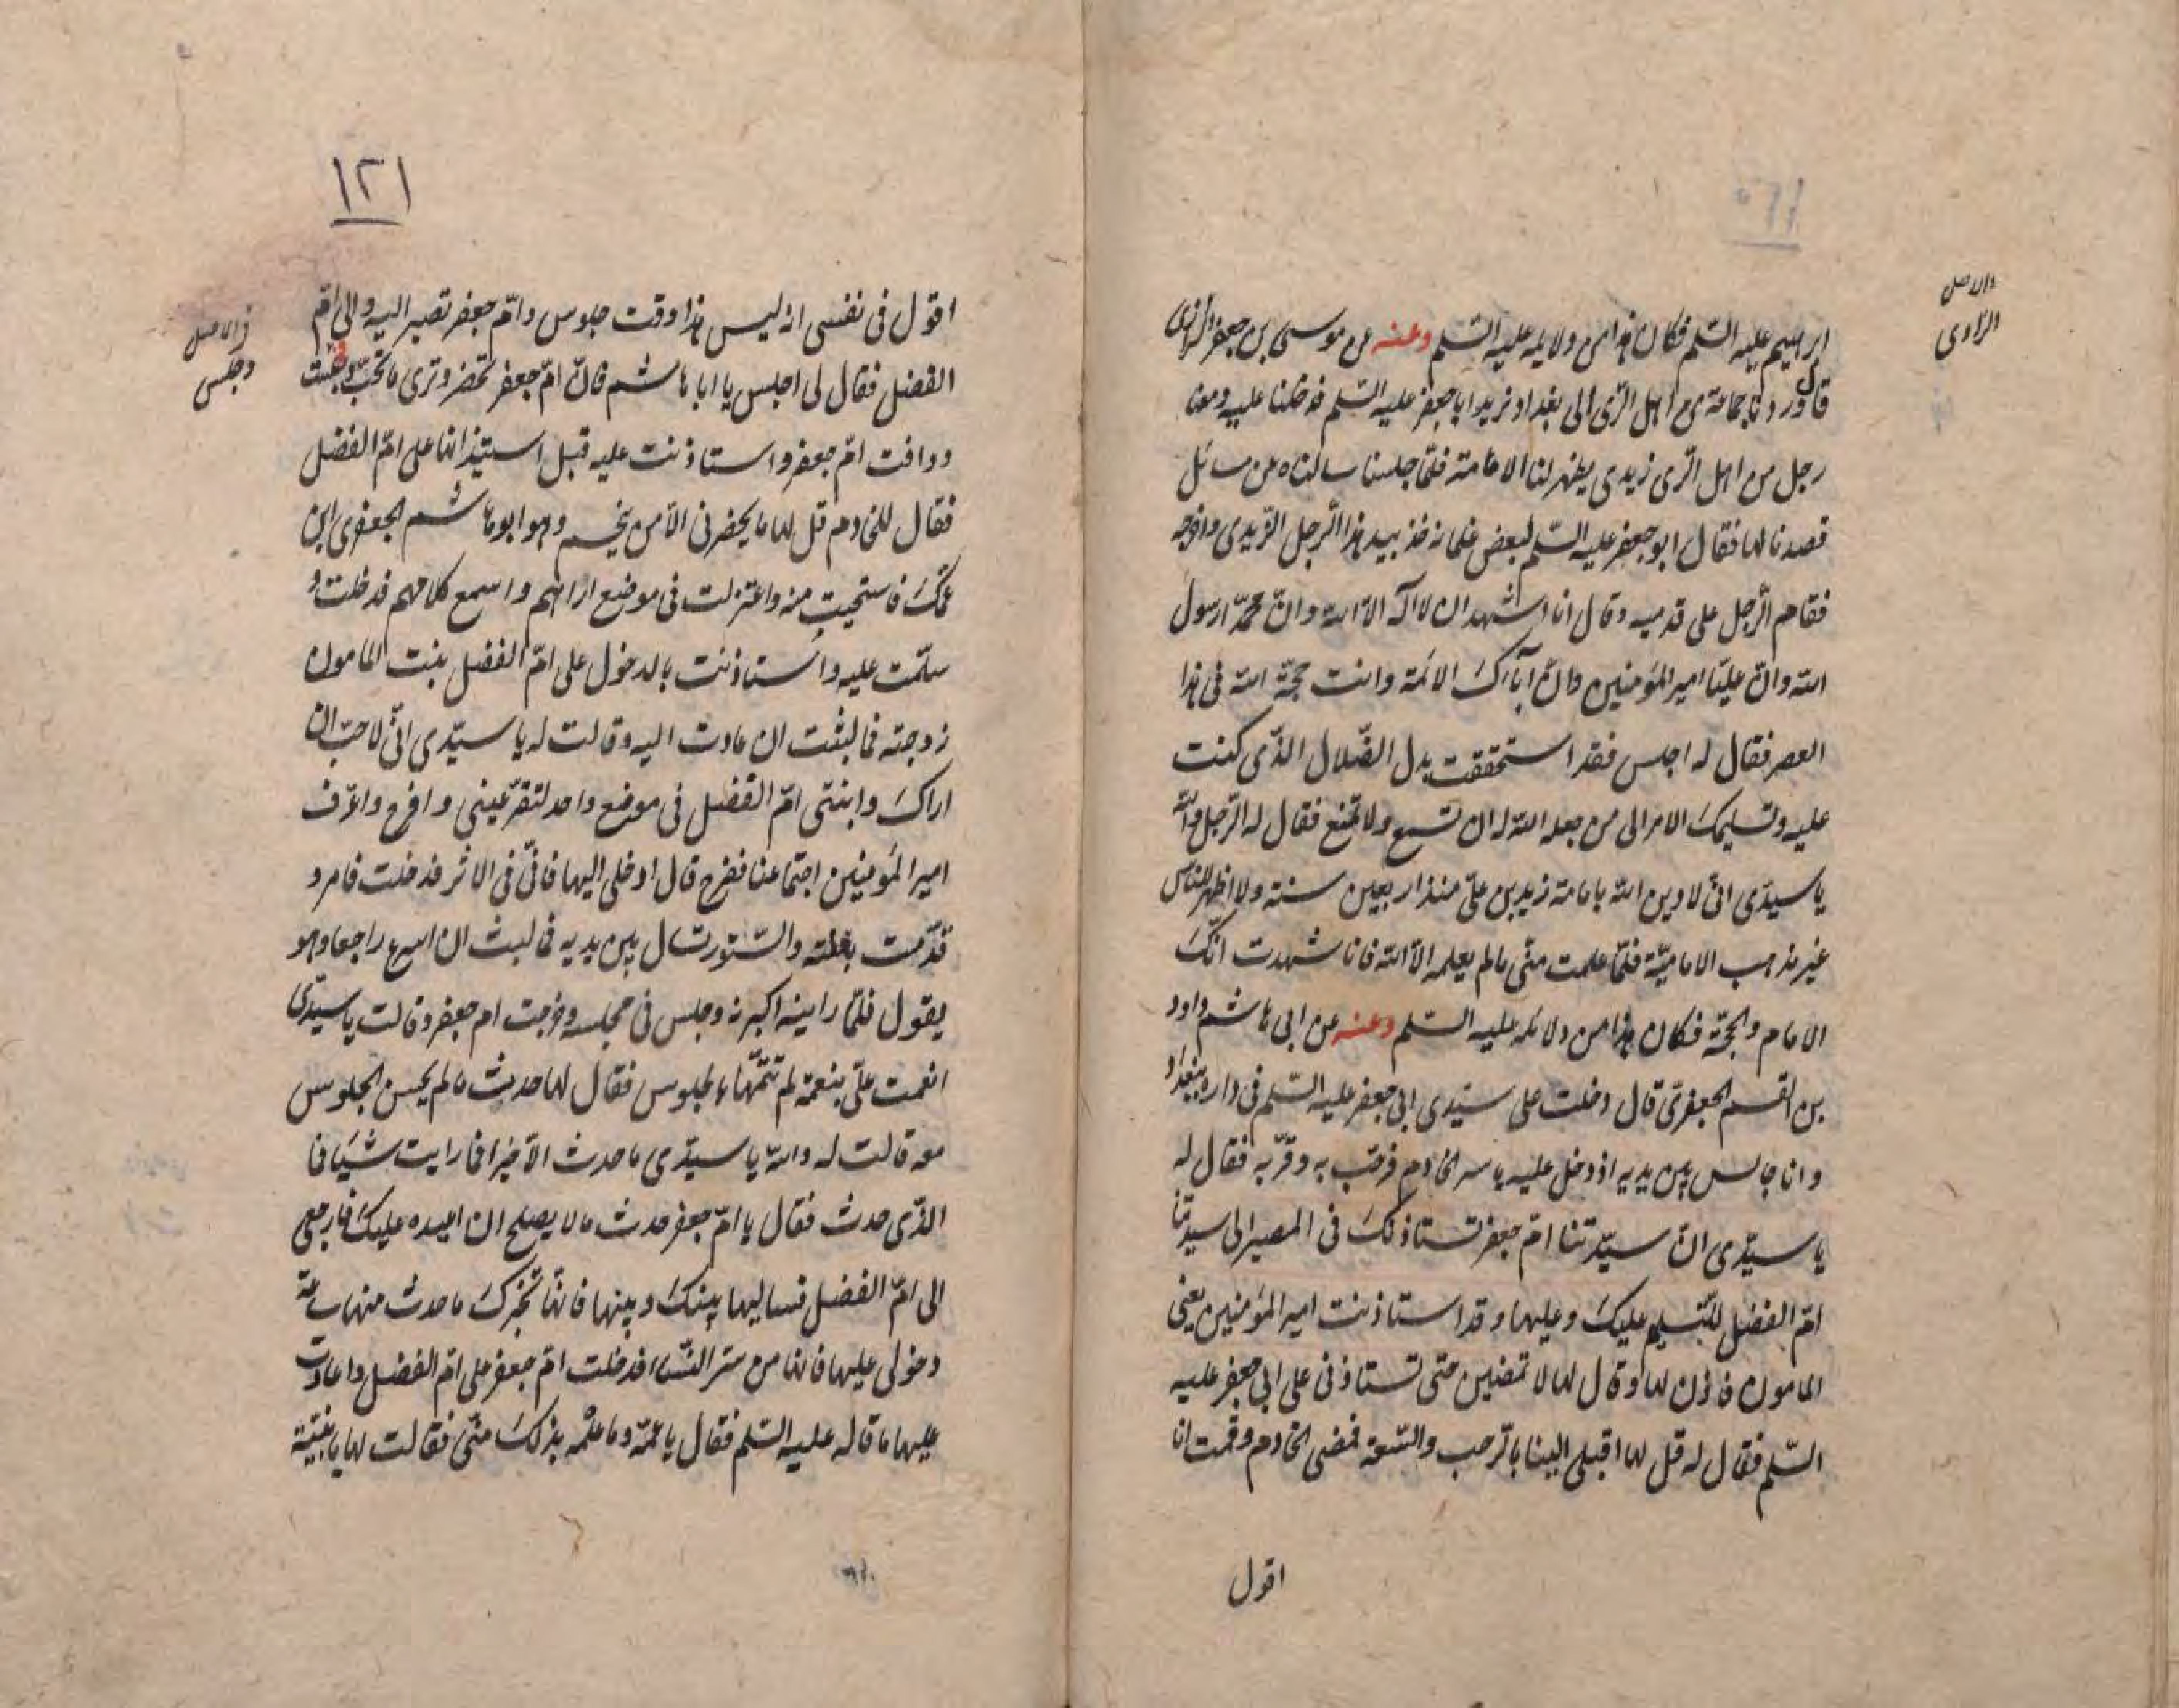 ابرهيم عليه السّلم فكان هذا من دلايله عليه السّلم وعنه عن موسى بن جعفر الرّازى
قال وردنا جماعة من اهل الرّى الى بغداد نريد ابا جعفر عليه السّلم فدخلنا عليه ومعنا
رجل من اهل الرّى زيدى يظهر لنا الامامة فلمّا جلسنا سالناه عن مسائل
قصدنا لها فقال ابو جعفر عليه السّلم لبعض غلمانه خذ بيد هذا الرّجل الزّيدى واخرجه
فقام الرّجل على قدميه وقال انا اشهد ان لا اله الّا الله وانّ محمّدا رسول
الله وانّ عليّا امير المؤمنين وانّ آباءك الائمة وانت حجّة الله فى هذا
العصر فقال له اجلس فقد استحققت بدل الضّلال الذّى كنت
عليه وتسليمك الامر الى من جعله الله له ان تسمع ولا تمنع فقال له الرّجل والله
يا سيدّى انّى لادين الله بامامة زيد بن علىّ منذ اربعين سنة ولا اظهر للناس
غير مذهب الاماميّة فلمّا علمت منّى مالم يعلمه الّا الله فانا شهدت انّك
الامام والحجّة فكان هذا من دلائله عليه السّلم وعنه عن ابى هاشم داود
بن القسم الجعفرىّ قال دخلت على سيّدى ابى جعفر عليه السّلم فى داره ببغداد
وانا جالس بين يديه اذ دخل عليه ياسر الخادم فرحّب به وقرّبه فقال له
يا سيّدى انّ سيّدتنا امّ جعفر تستاذنك فى المصير الى سيدتنا
امّ الفضل للتّسليم عليك وعليها وقد استاذنت امير المؤمنين يعنى
المامون فاذن لها وقال لها لا تمضين حتى تستاذنى على ابى جعفر عليه
السّلم فقال له قل لها اقبلى الينا بالترحب والسّعة فمضى الخادم وقمت انا
اقول
والاصل
الزّاوى
١٢١
اقول فى نفسى انه ليس هذا وقت جلوس وامّ جعفر تصير اليه والى امّ
الفضل فقال لى اجلس يا ابا هاشم فانّ امّ جعفر تحضر وترى ما تحبّ وجلست
ووافت امّ جعفر واستاذنت عليه قبل استيذانها على امّ الفضل
فقال للخادم قل لها ما يحضرنى الّا من يخصّ وهو ابو هاشم الجعفرى ابن
عمّك فاستحيت منه واعتزلت فى موضع اراهم واسمع كلامهم فدخلت و
سلّمت عليه واستاذنت بالدخول على امّ الفضل بنت المامون
زوجته فما لبثت ان عادت اليه وقالت له يا سيّدى انّى لاحبّ ان
اراك وابنتى امّ الفضل فى موضع واحد لتقرّ عينى وافرح واعرّف
امير المؤمنين اجتماعنا فيفرح قال ادخلى اليها فانّى فى الاثر فدخلت فامر و
قدّمت بغلته والسّتور تشال بين يديه فما لبث ان اسرع راجعا وهو
يقول فلمّا راينه اكبرنه وجلس فى مجلسه وخرجت ام جعفر وقالت يا سيدّى
انعمت علىّ بنعمة لم تتمّها بالجلوس فقال لها حديث ما لم يحسن الجلوس
معه قالت له والله يا سيدّى ما حدث الّا خيرا فما رايت شيئا فما
الذّى حدث فقال يا امّ جعفر حدث ما لا يصلح ان اعيده عليك فارجعى
الى امّ الفضل فساليها بينك وبينها فانّها تخبرك ما حدث منها ساعة
دخولى عليها فانها من ستر النّساء فدخلت امّ جعفر على امّ الفضل واعادت
عليها ما قاله عليه السّلم فقال يا عمّة وما علمه بذلك منّى فقالت لها يا بنيّة
فى الاصل
وجلس